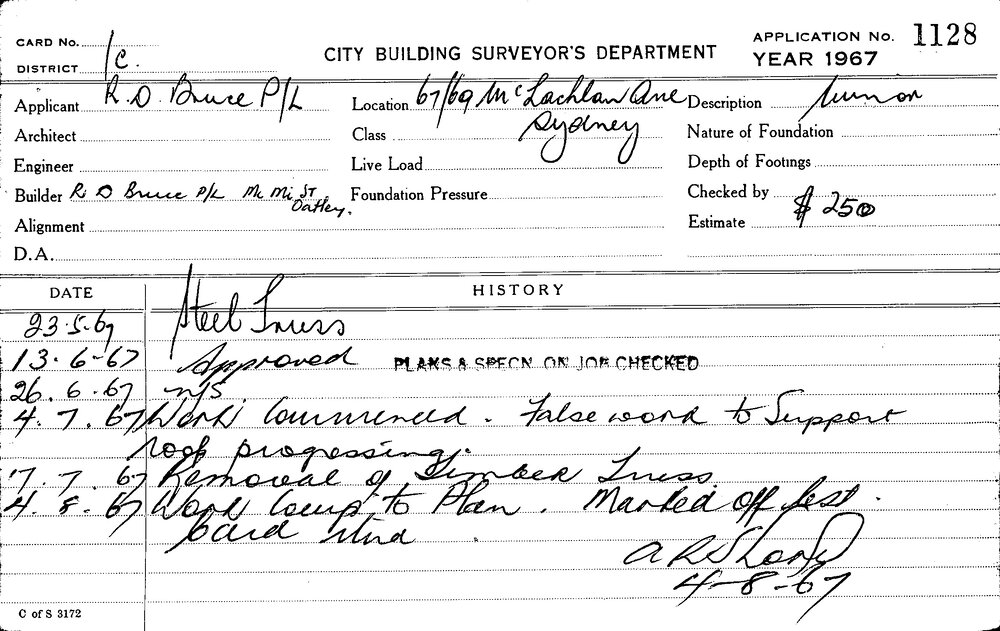 CARD No. 1c.
DISTRICT
CITY BUILDING SURVEYOR'S DEPARTMENT
APPLICATION No. 1128
YEAR 1967
Applicant R. D. Bruce P/L
Location 67/69 McLachlan Ave
Sydney
Description Minor
Architect
Class
Nature of Foundation
Engineer
Live Load
Depth of Footings
Builder R. D Bruce P/L St.
Oatley.
Foundation Pressure
Checked by
Alignment
Estimate $ 250
D.A.
DATE
HISTORY
23.5.67 Steel Truss
13.6.67 Approved PLANS & SPECN. ON JOB CHECKED
26.6.67 n/s.
4.7.67 Work Commenced. False work to Support
roof progressing.
7.7.67 Removal of Timber Truss
4.8.67 Work Comp to Plan. Marked off last.
Card
4-8-67
C of S 3172